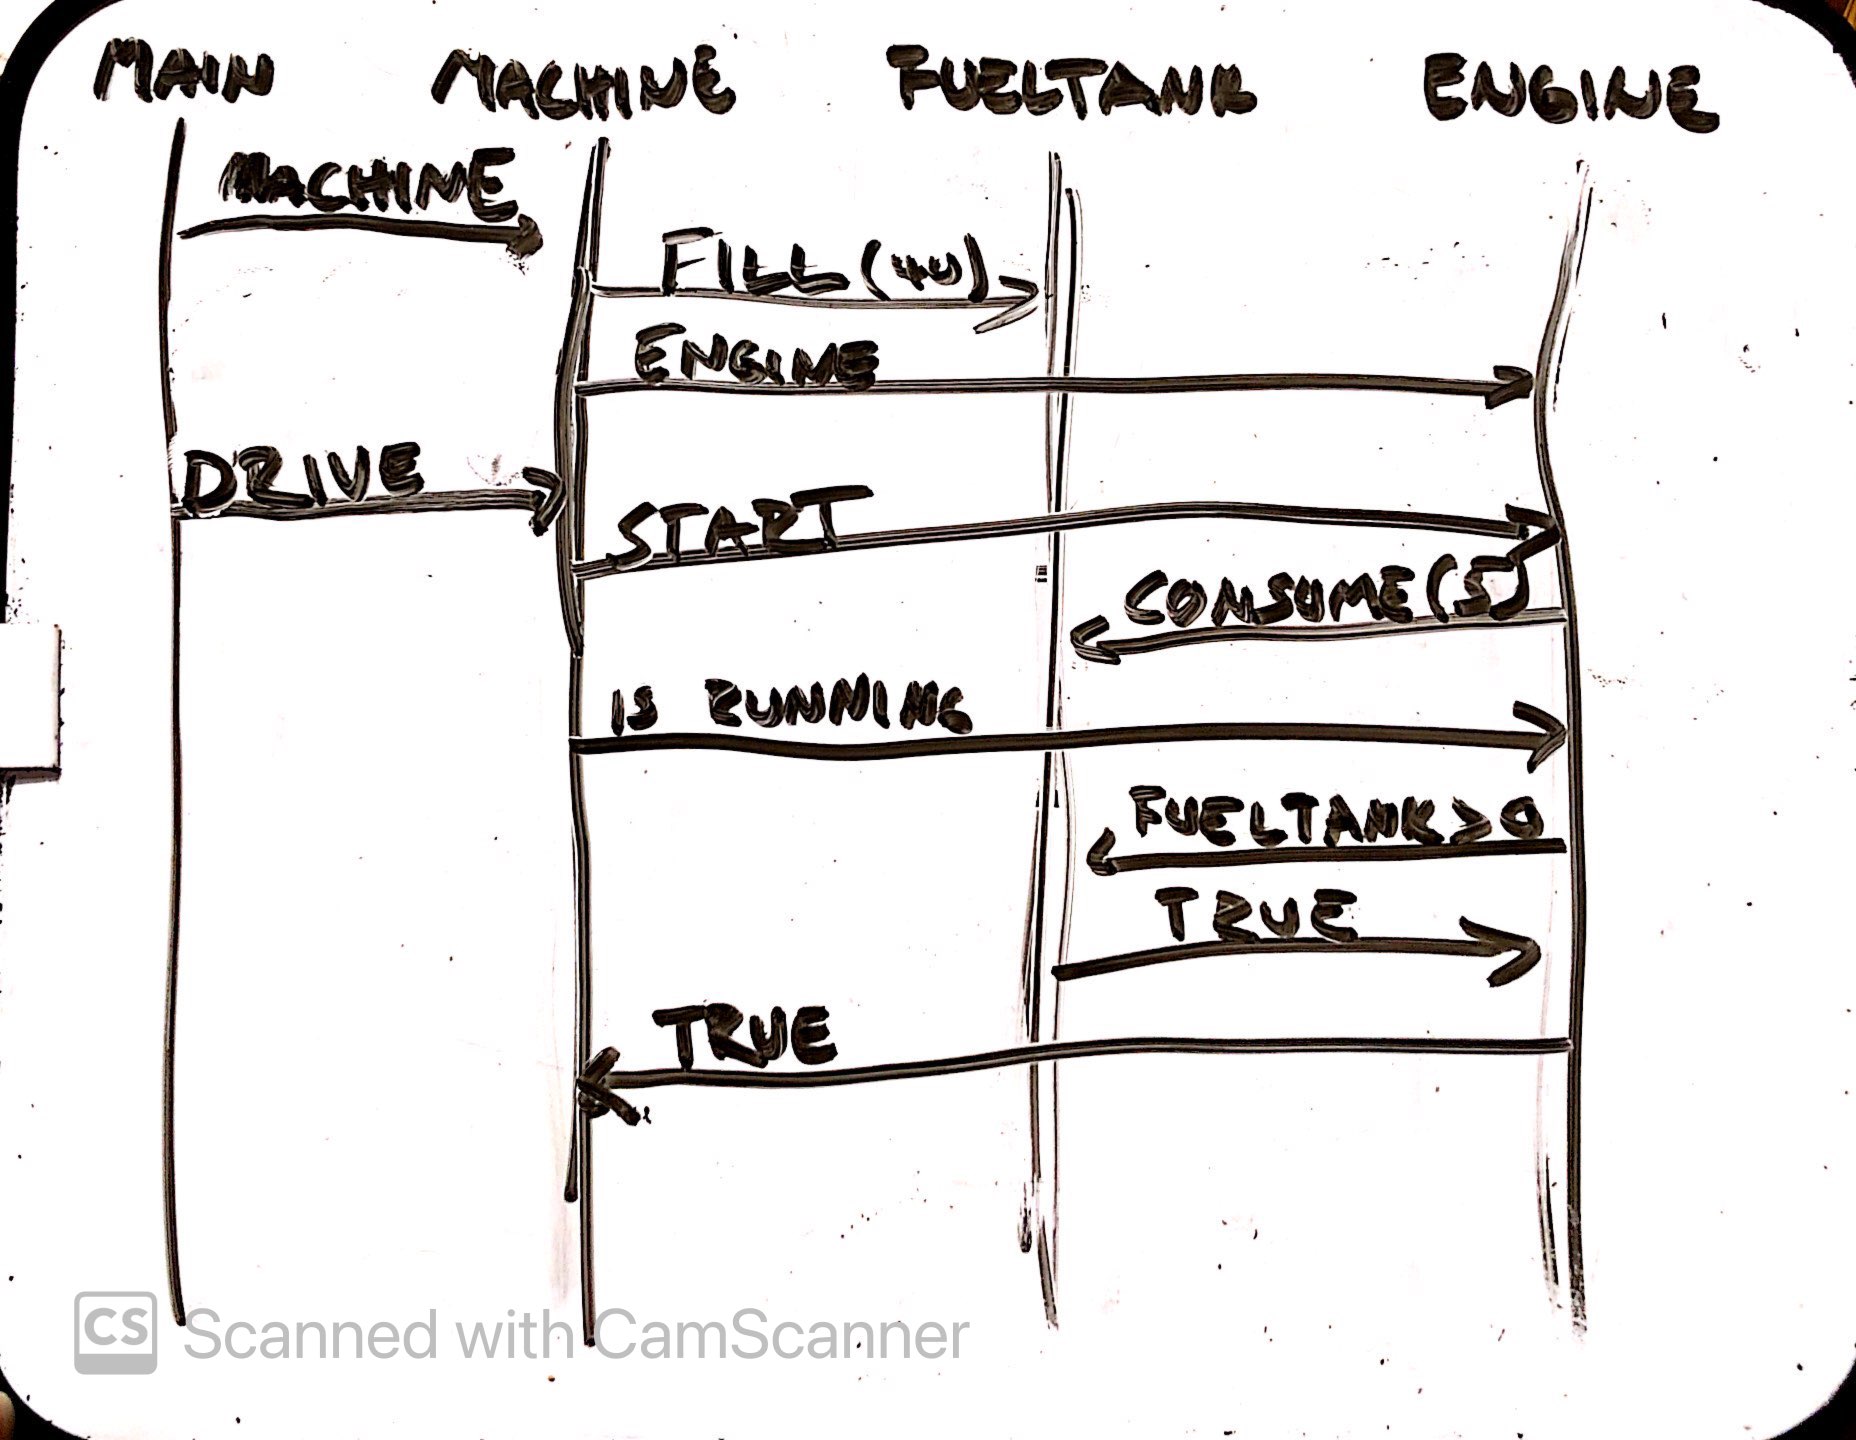 MAIN MACHINE FUELTANK ENGINE
MACHINE
FILL (40)
ENGINE
DRIVE
START
CONSUME (5)
IS RUNNING
FUELTANK > 0
TRUE
TRUE
CS Scanned with CamScanner